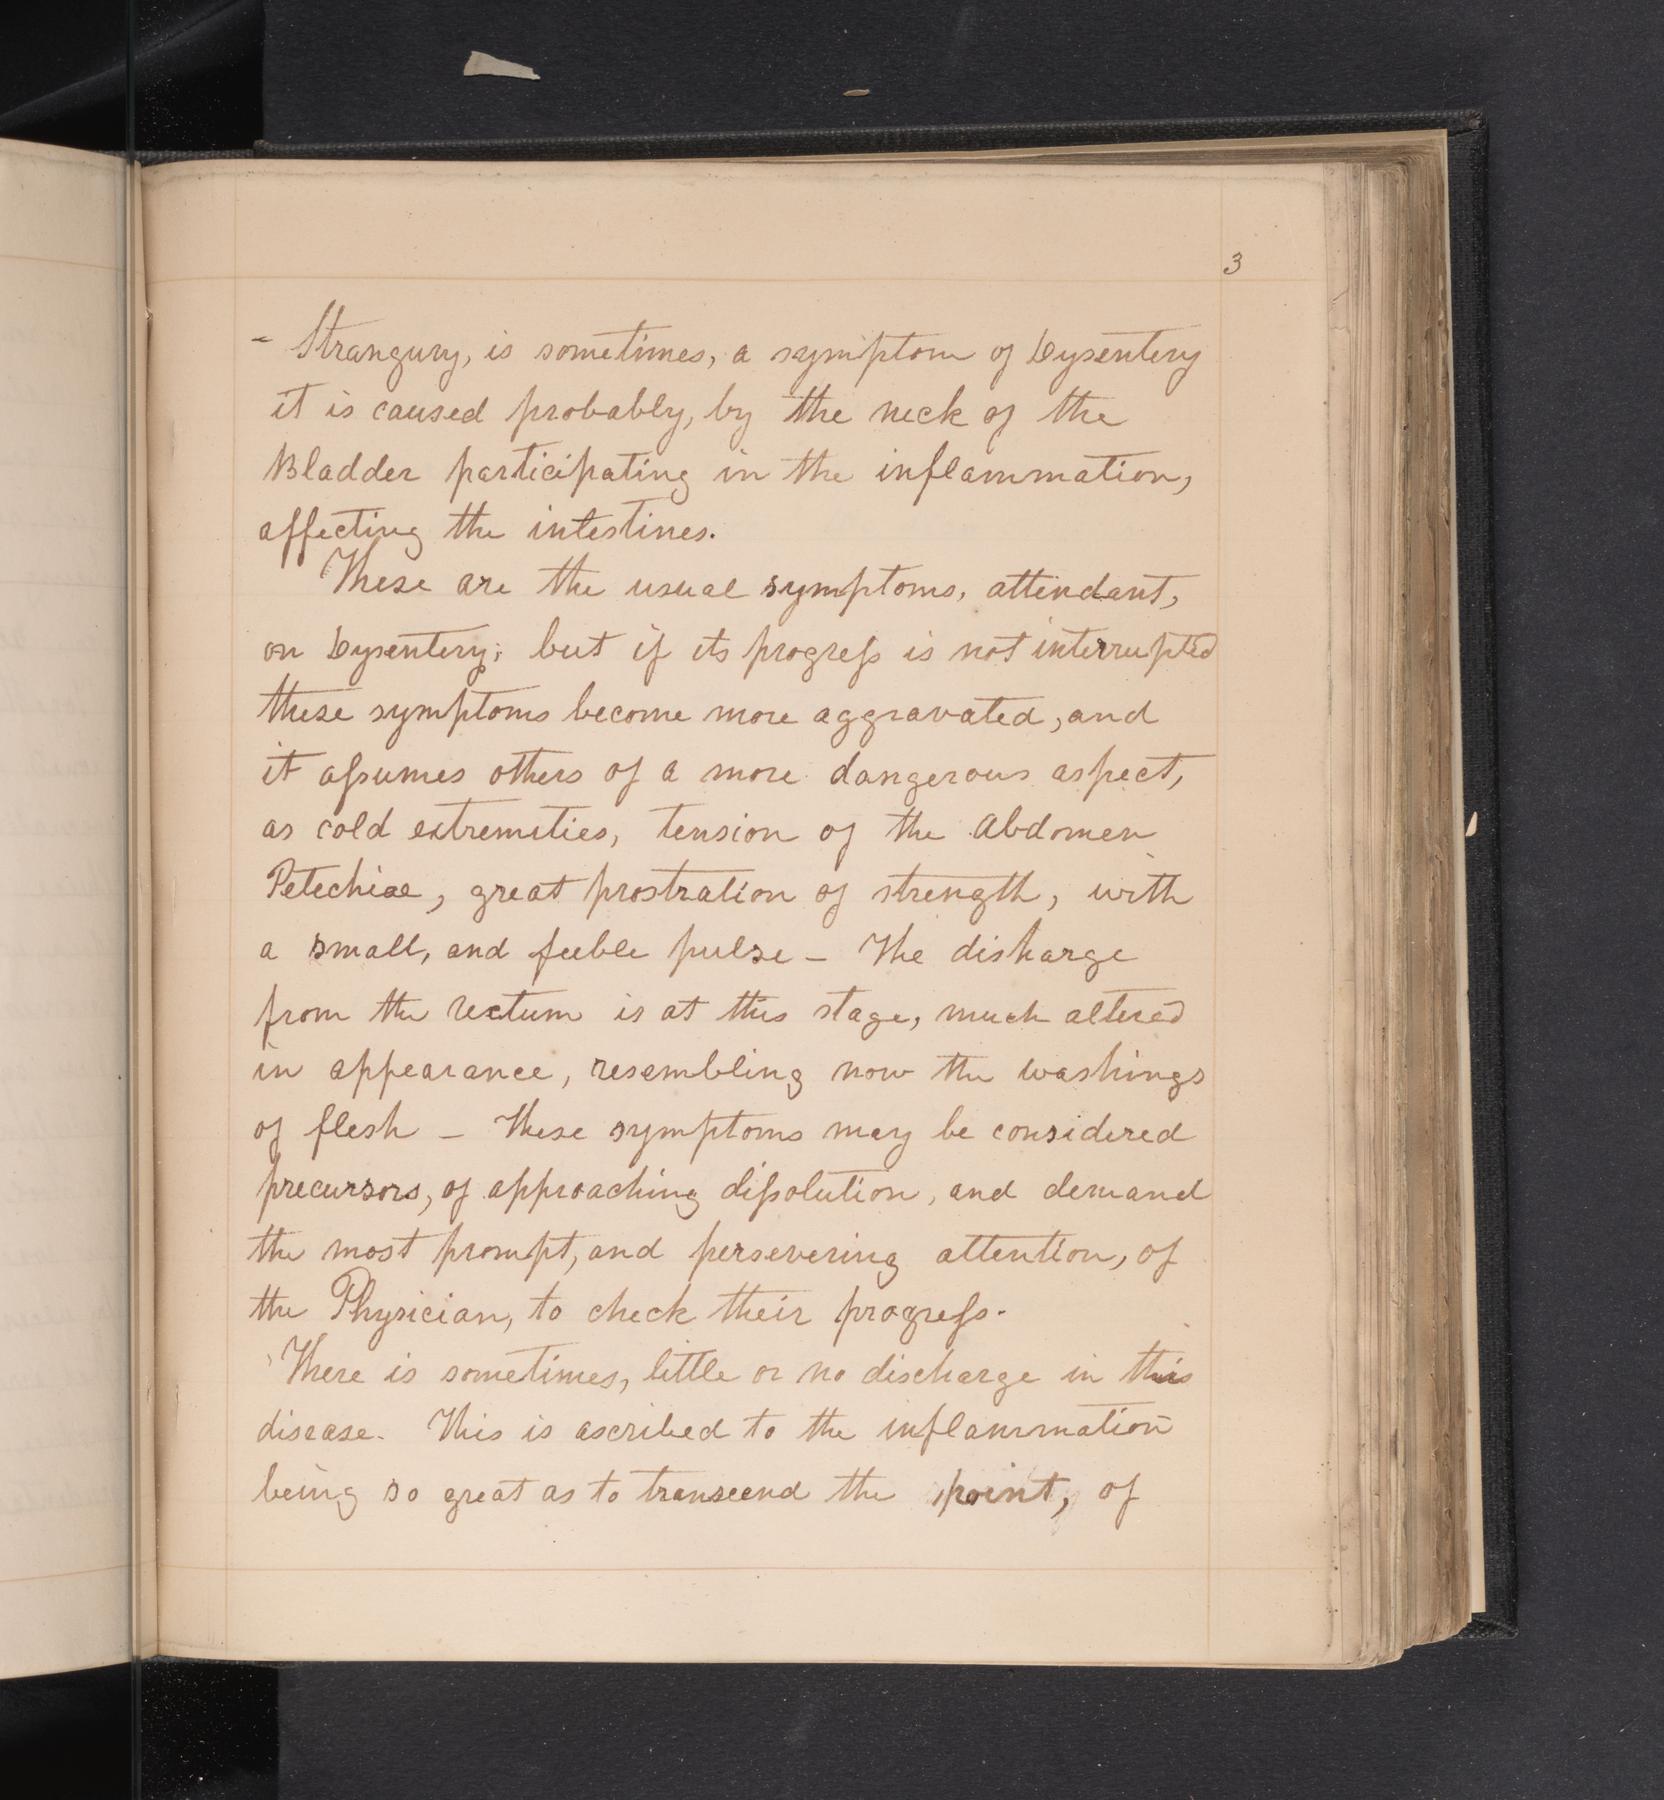 3
- Strangury, is sometimes, a symptom of Dysentery
it is caused probably, by the neck of the
Bladder participating in the inflammation,
affecting the intestines.
These are the usual symptoms, attendant,
on Dysentery; but if its progreſs is not interrupted
these symptoms become more aggravated, and
it aſsumes others of a more dangerous aspect,
as cold extremities, tension of the Abdomen
Petechiae, great prostration of strength, with
a small, and feeble pulse - The disharge
from the rectum is at this stage, much altered
in appearance, resembling now the washings
of flesh - These symptoms may be considered
precursors, of approaching diſsolution, and demand
the most prompt, and persevering attention, of
the Physician, to check their progreſs.
There is sometimes, little or no discharge in this
disease. This is ascribed to the inflammation
being so great as to transcend the point, of